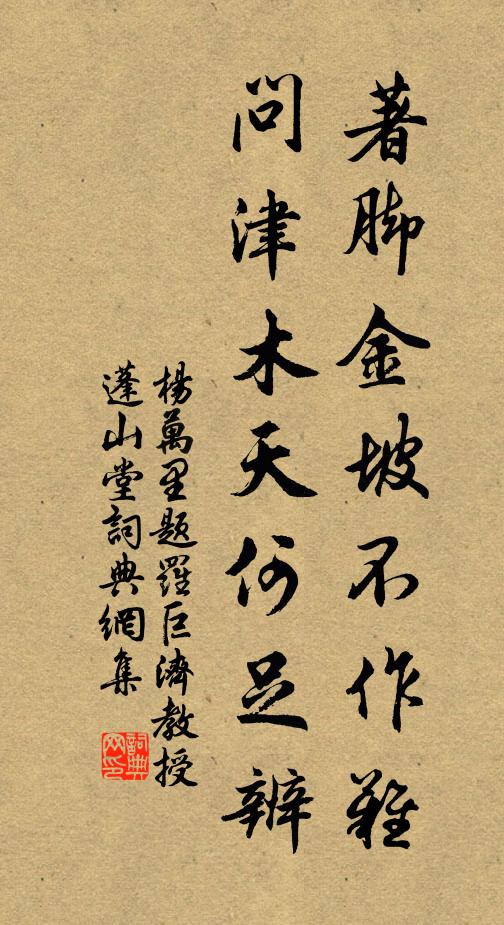 著脚金坡不作難
問津木天何足辨
楊萬里題羅巨濟教授
蓬山堂詞典網集
詞典网印